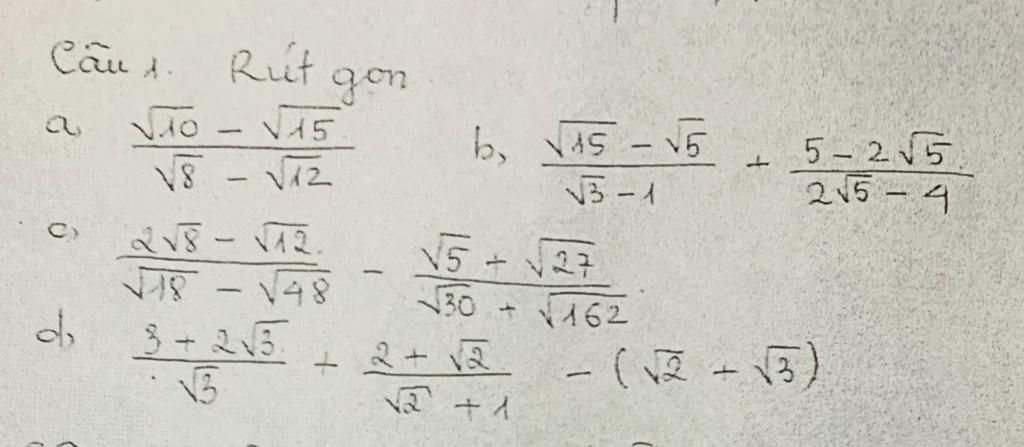 Câu 1. Rút gon
a, \frac{\sqrt{10} - \sqrt{15}}{\sqrt{8} - \sqrt{12}} b, \frac{\sqrt{15} - \sqrt{5}}{\sqrt{3} - 1} + \frac{5 - 2\sqrt{5}}{2\sqrt{5} - 4}
c, \frac{2\sqrt{8} - \sqrt{12}}{\sqrt{18} - \sqrt{48}} - \frac{\sqrt{5} + \sqrt{27}}{\sqrt{30} + \sqrt{162}}
d, \frac{3 + 2\sqrt{3}}{\sqrt{3}} + \frac{2 + \sqrt{2}}{\sqrt{2} + 1} - (\sqrt{2} + \sqrt{3})